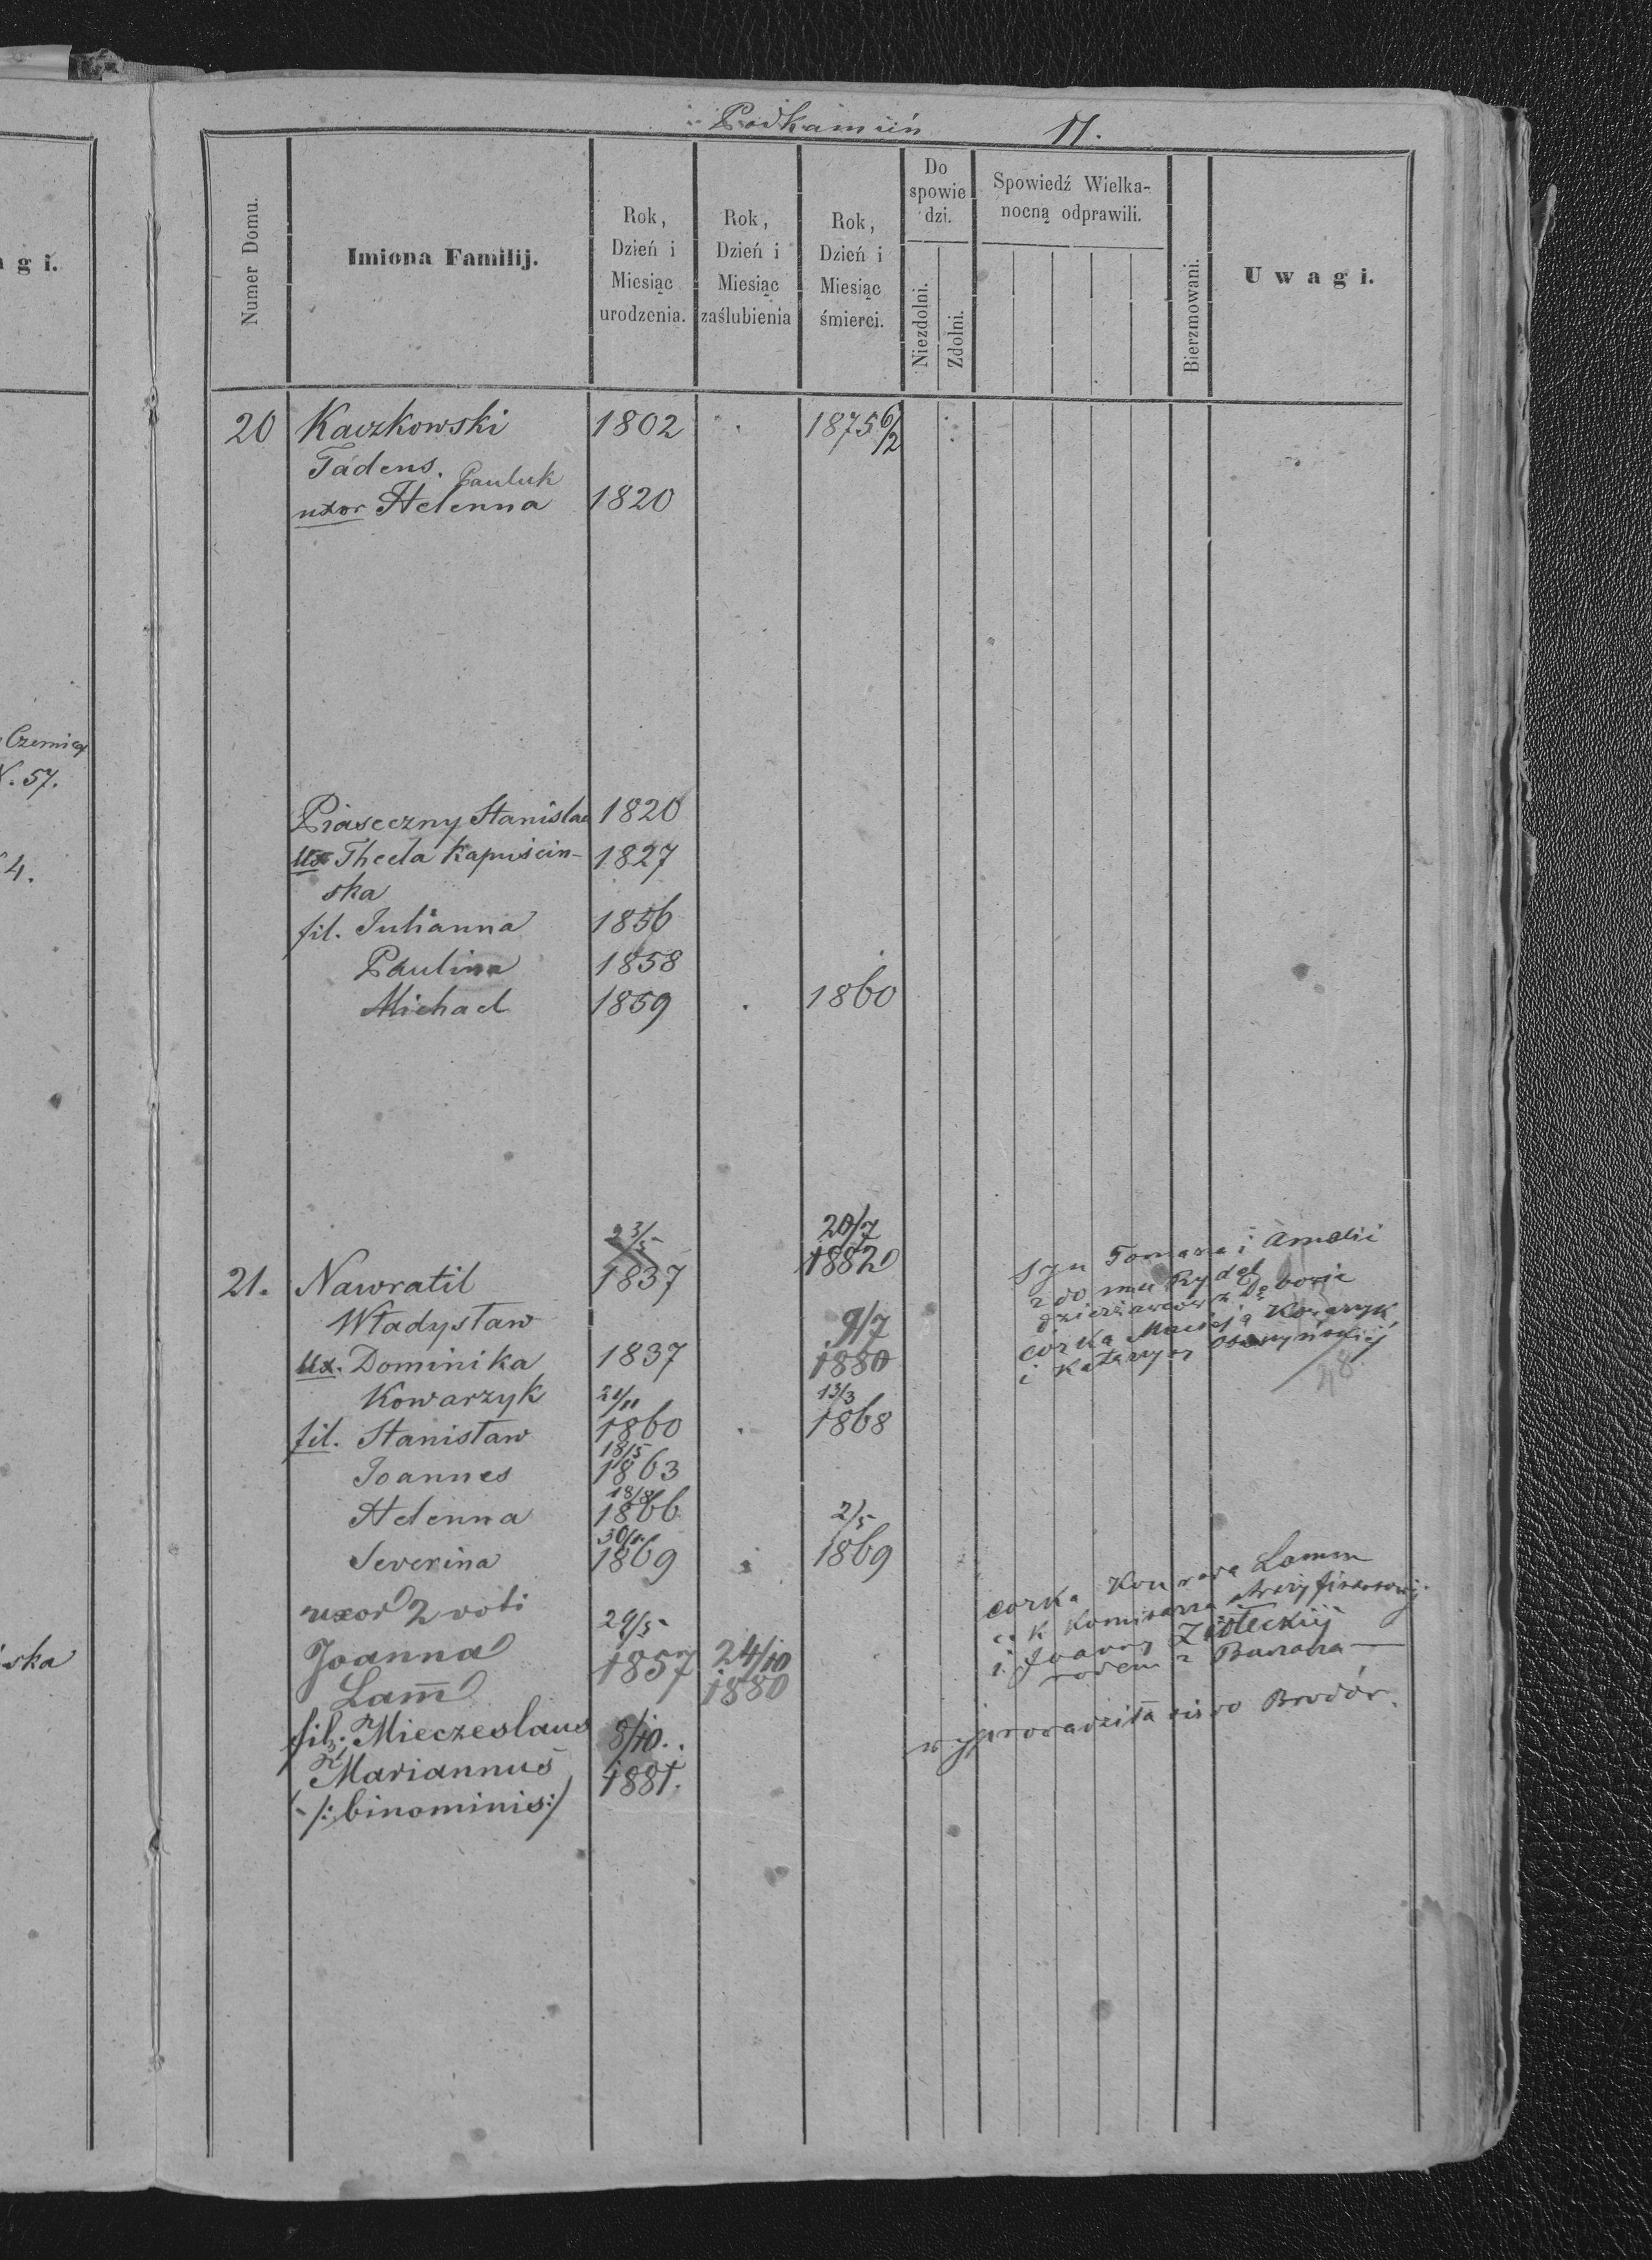 Podkamień 11.
Numer Domu.
Imiona Familij.
Rok, Dzień i Miesiąc urodzenia.
Rok, Dzień i Miesiąc zaślubienia
Rok, Dzień i Miesiąc śmierci.
Do spowie dzi.
Niezdolni.
Zdolni.
Spowiedź Wielka-
nocną odprawili.
Bierzmowani.
Uwagi.
gi.
Czernica
N. 57.
4.
ska
20 Kaczkowski 1802 1875 6/2
Tadeus. Pauluk
uxor Helenna 1820
Piaseczny Stanislaa 1820
Ux Thecla Kapuścin- 1827
ska
fil. Julianna 1856
Paulina 1858
Michael 1859 1860
23/5 20/7
21. Nawratil 1837 1882
syn Tomasza i Amalii
z domu Rydel
dzierżawców z
Władysław 9/7
córka Macieja Kowarzyk
i Katarzyny
Ux. Dominika 1837 1880
Kowarzyk 21/11 13/3
fil. Stanisław 1860 1868
18/5
Joannes 1863
18/8
Helenna 1866 2/5
30/1
Severina 1869 1869
uxor 2 voti 29/5
Joanna 1857 24/10
Lam̄ 1880
corka Konrada Lamm
c. k Komisarza straży finansowej
i Joanny Ziółeckiej
rodem z
wyprowadziła się do Brodów.
fil. Mieczeslaus 8/10.
Mariannus 1881.
/: binominis :/